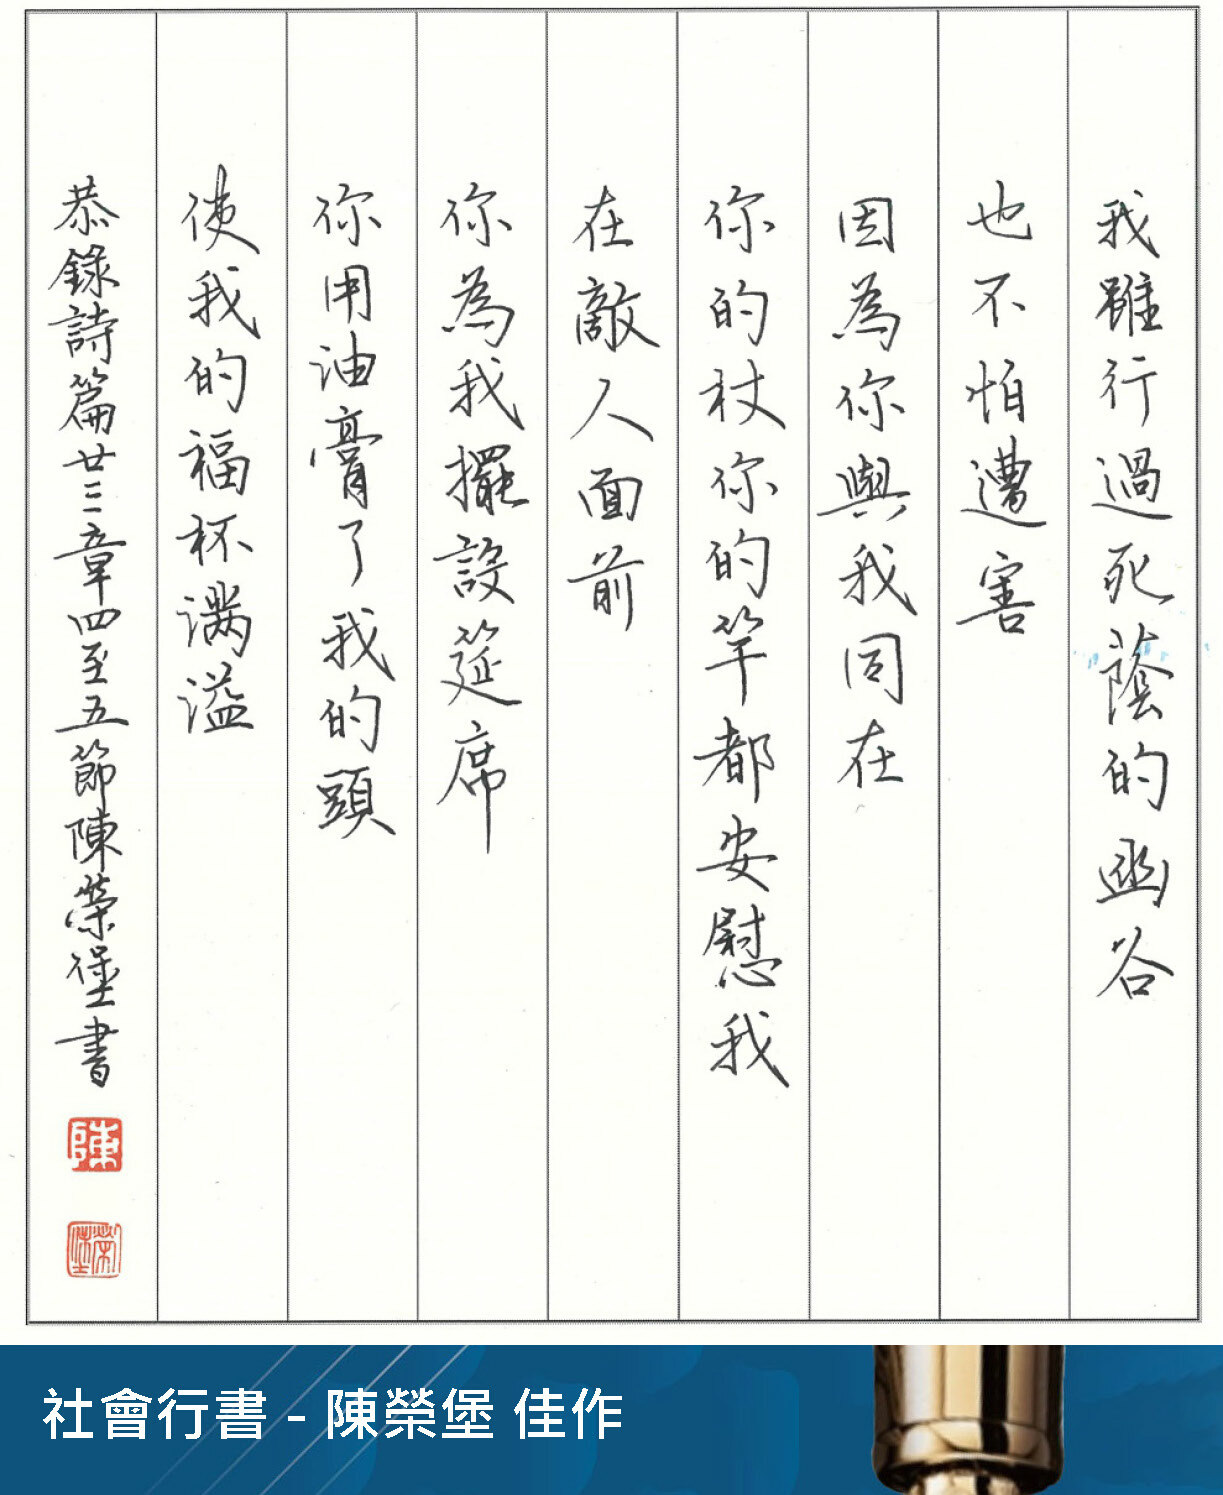 我雖行過死蔭的幽谷
也不怕遭害
因為你與我同在
你的杖你的竿都安慰我
在敵人面前
你為我擺設筵席
你用油膏了我的頭
使我的福杯滿溢
恭錄詩篇廿三章四至五節陳榮堡書
陳
榮堡
社會行書 - 陳榮堡 佳作